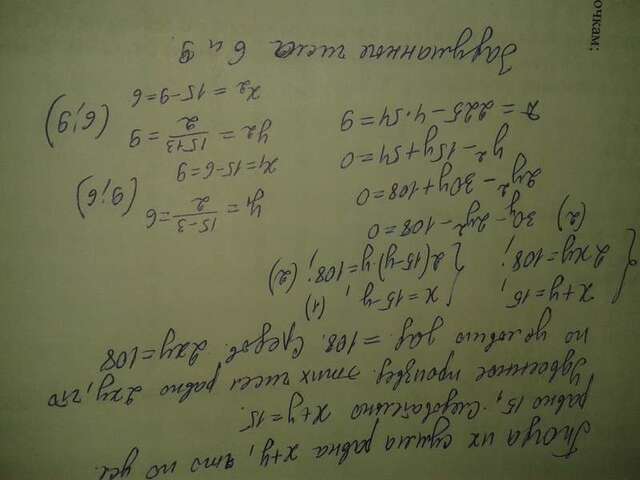 Тогда их сумма равна x+y, что по усл.
равно 15, следовательно x+y=15.
Удвоенное произвед. этих чисел равно 2xy, что
по условию дан. = 108. Следов. 2xy=108
{ x+y=15, { x=15-y, (1)
2xy=108; 2(15-y)y=108; (2)
(2) 30y-2y²-108=0
2y²-30y+108=0
y²-15y+54=0
D=225-4·54=9
y₁=(15-3)/2=6 (9;6)
x₁=15-6=9
y₂=(15+3)/2=9 (6;9)
x₂=15-9=6
Задуманные числа 6 и 9.
очкам: